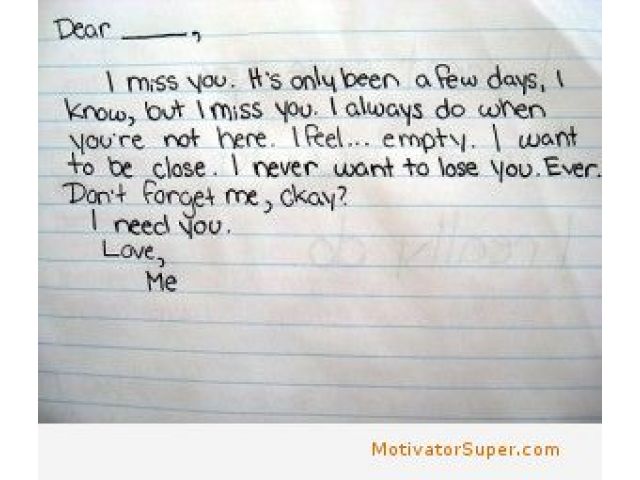 Dear _____,
I miss you. It's only been a few days, I
know, but I miss you. I always do when
you're not here. I feel... empty. I want
to be close. I never want to lose you. Ever.
Don't forget me, okay?
I need you.
Love,
Me
I really do.
MotivatorSuper.com